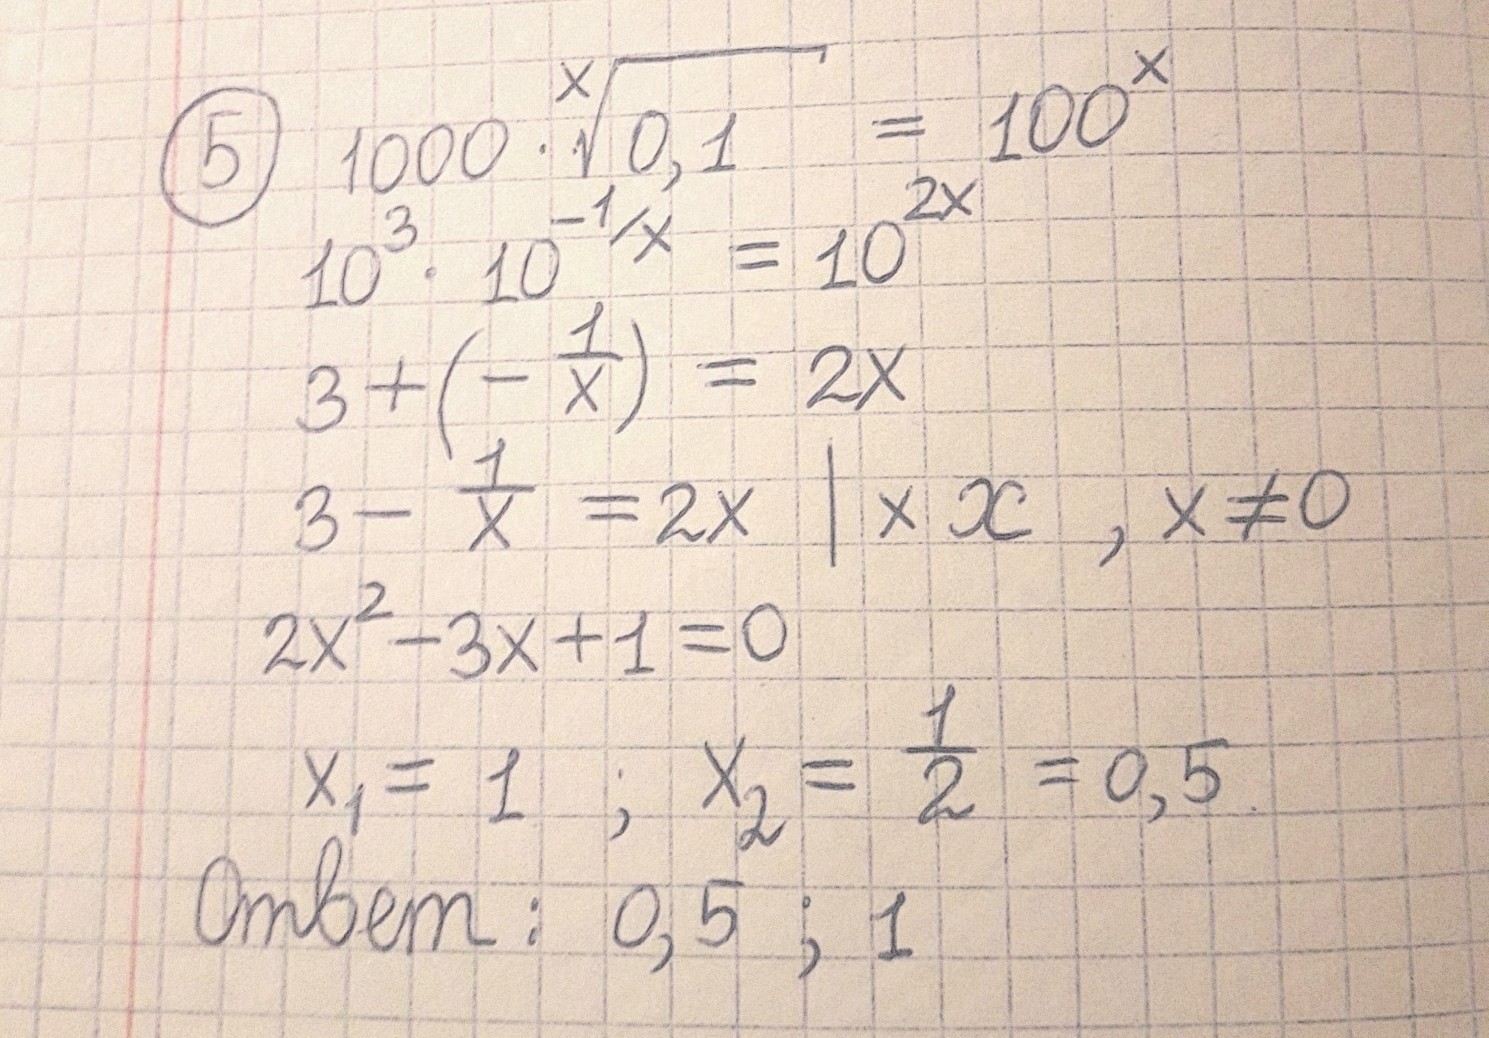 ⑤ 1000 · ˣ√0,1 = 100ˣ
10³ · 10^(-1/x) = 10^(2x)
3 + (- 1/x) = 2x
3 - 1/x = 2x | × x , x ≠ 0
2x² - 3x + 1 = 0
x₁ = 1 ; x₂ = 1/2 = 0,5
Ответ : 0,5 ; 1